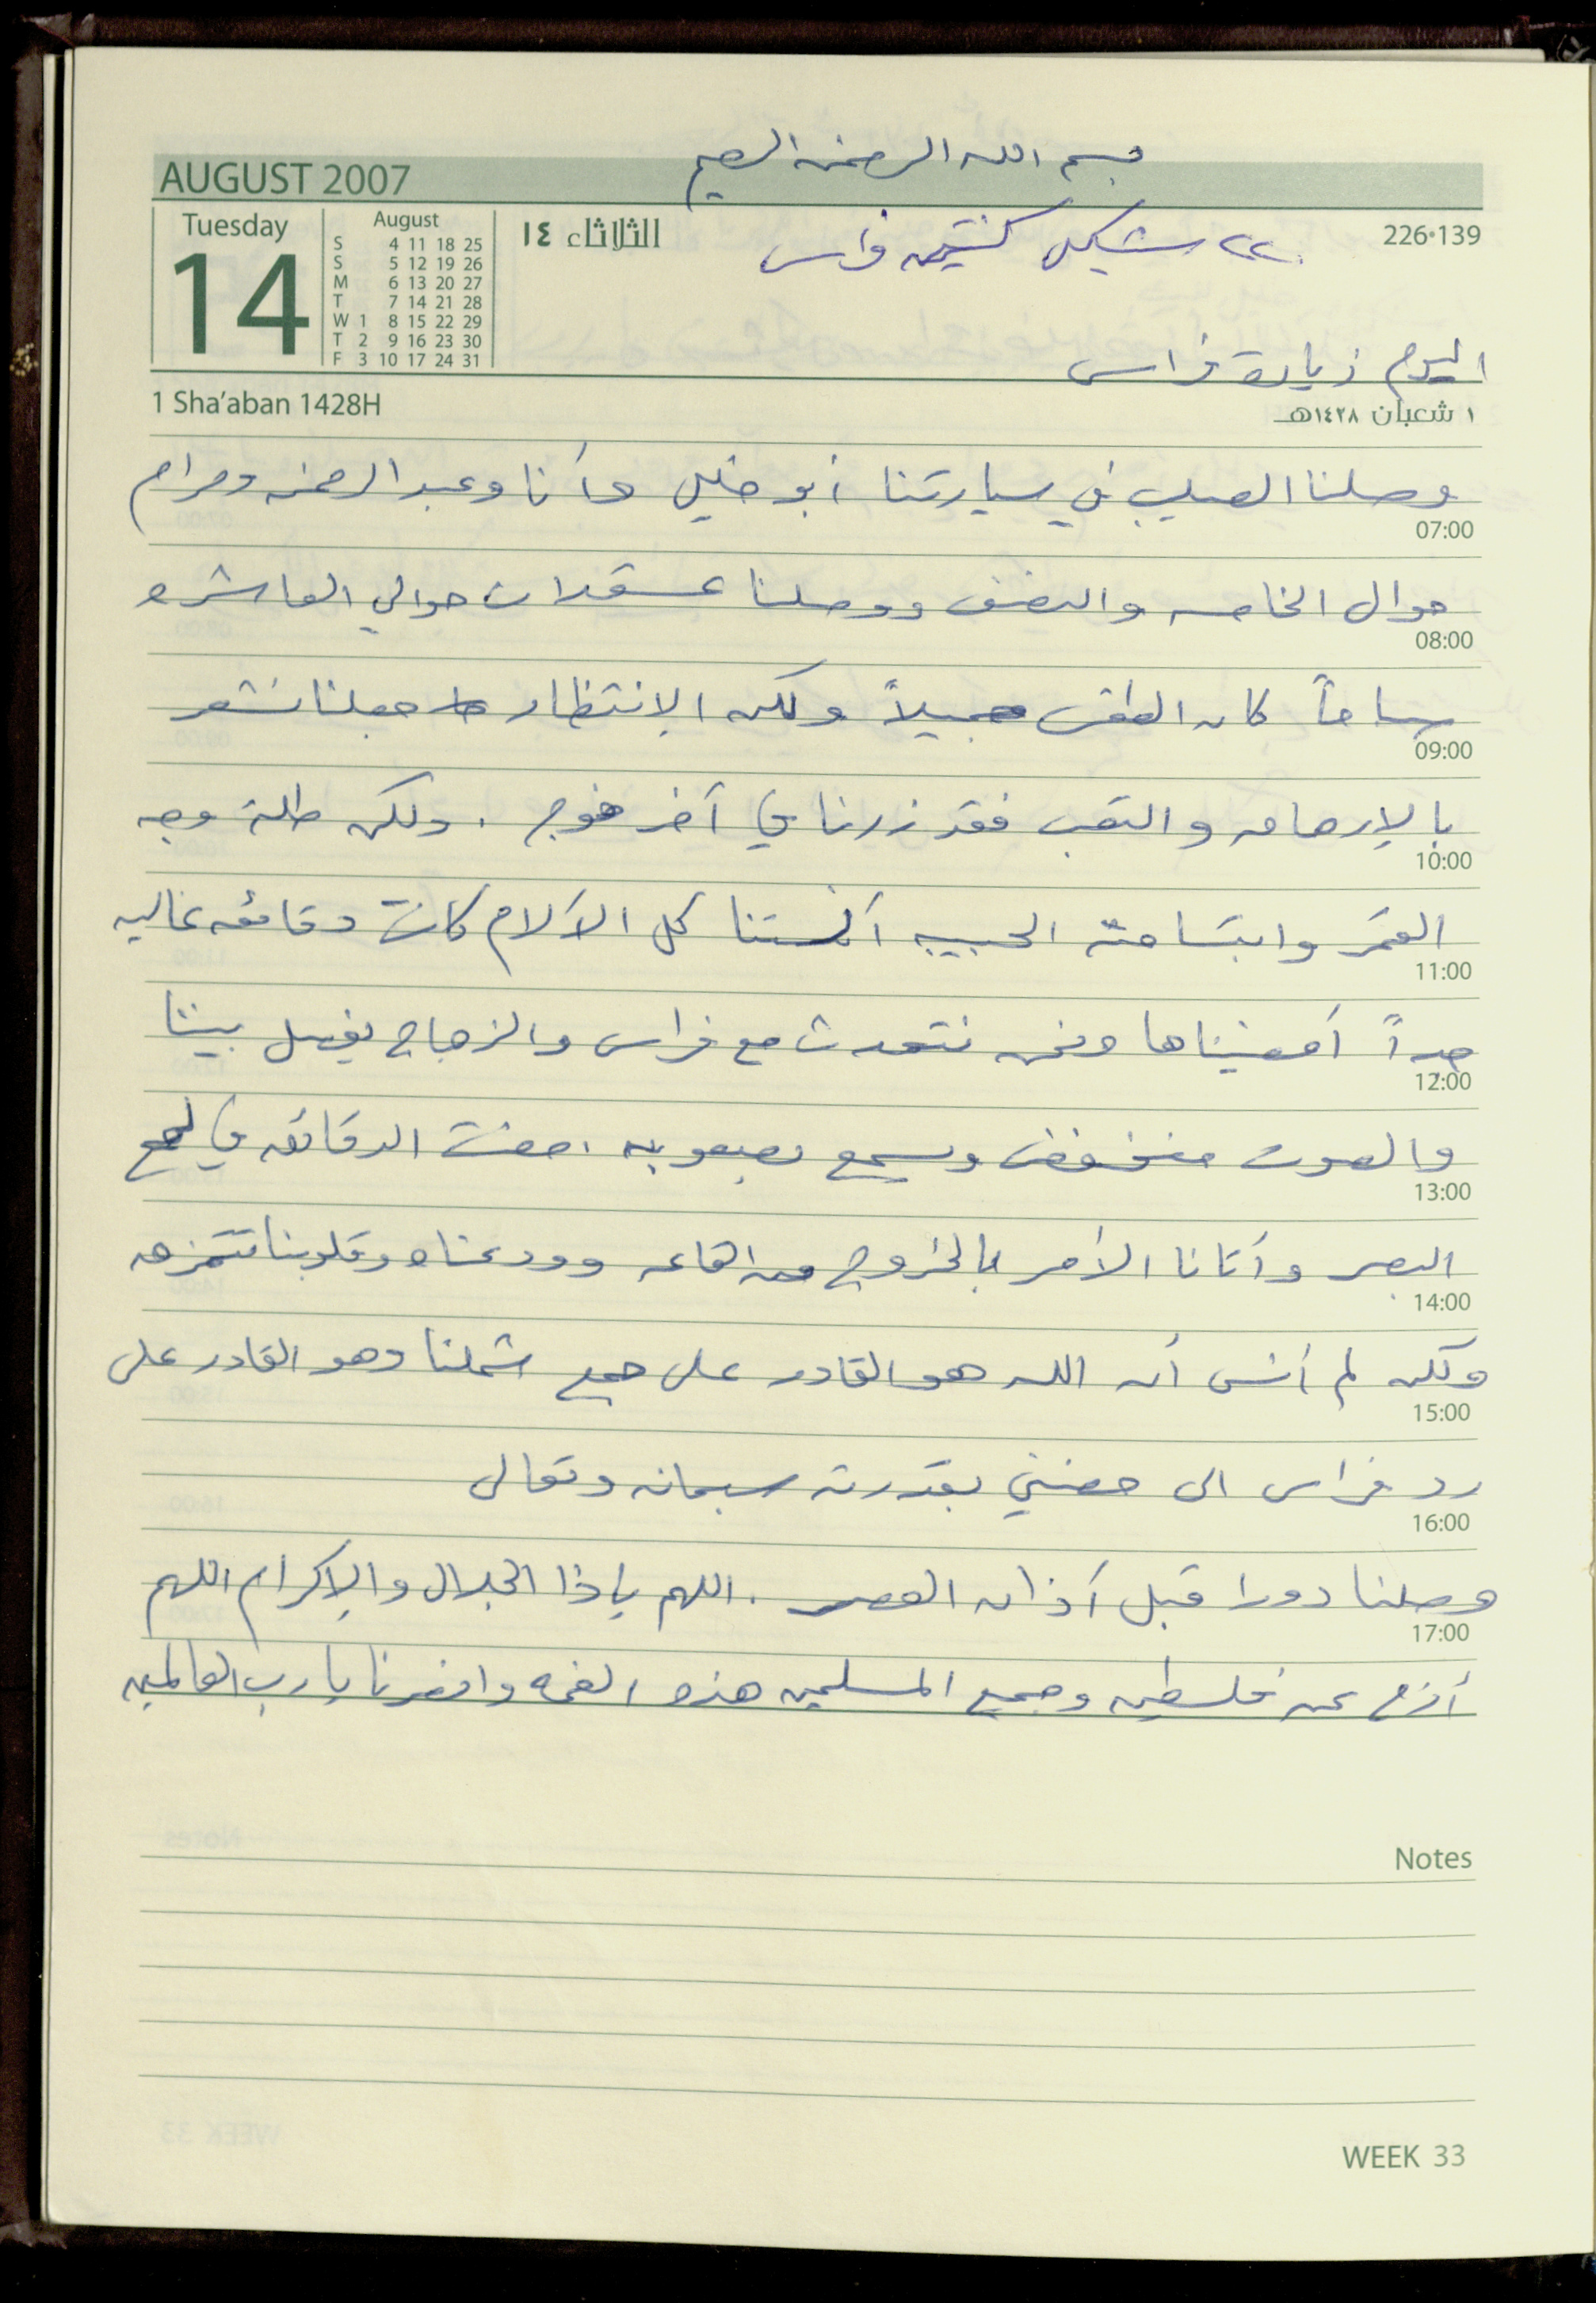 بسم الله الرحمن الرحيم
AUGUST 2007
Tuesday
14
August
S 4 11 18 25
S 5 12 19 26
M 6 13 20 27
T 7 14 21 28
W 1 8 15 22 29
T 2 9 16 23 30
F 3 10 17 24 31
الثلاثاء ١٤
٢٢٠ شيكل كنتين فراس
226•139
اليوم زيارة فراس
1 Sha'aban 1428H
١ شعبان ١٤٢٨هـ
وصلنا الصليب في سيارتنا أبو خليل وأنا وعبد الرحمن ومرام
07:00
حوال الخامسه والنصف ووصلنا عسقلان حوالي العاشره
08:00
صباحاً كان الطقس جميلاً ولكن الإنتظار جعلنا نشعر
09:00
بالإرهاق والتعب فقد زرنا في آخر فوج . ولكن طلة وجه
10:00
القمر وابتسامته الحبيبه أنستنا كل الآلام كانت دقائق غاليه
11:00
جداً أمضيناها ونحن نتحدث مع فراس والزجاج يفصل بيننا
12:00
والصوت منخفض ويسمع بصعوبه . مضت الدقائق في لمح
13:00
البصر وأتانا الأمر بالخروج من القاعه وودعناه وقلوبنا تتمزق
14:00
ولكن لم أنس أن الله هو القادر على جمع شملنا وهو القادر على
15:00
رد فراس الى حضني بقدرته سبحانه وتعالى
16:00
وصلنا دورا قبل أذان العصر . اللهم ياذا الجلال والإكرام اللهم
17:00
أزح عن فلسطين وجميع المسلمين هذه الغمه وانصرنا يا رب العالمين
Notes
WEEK 33